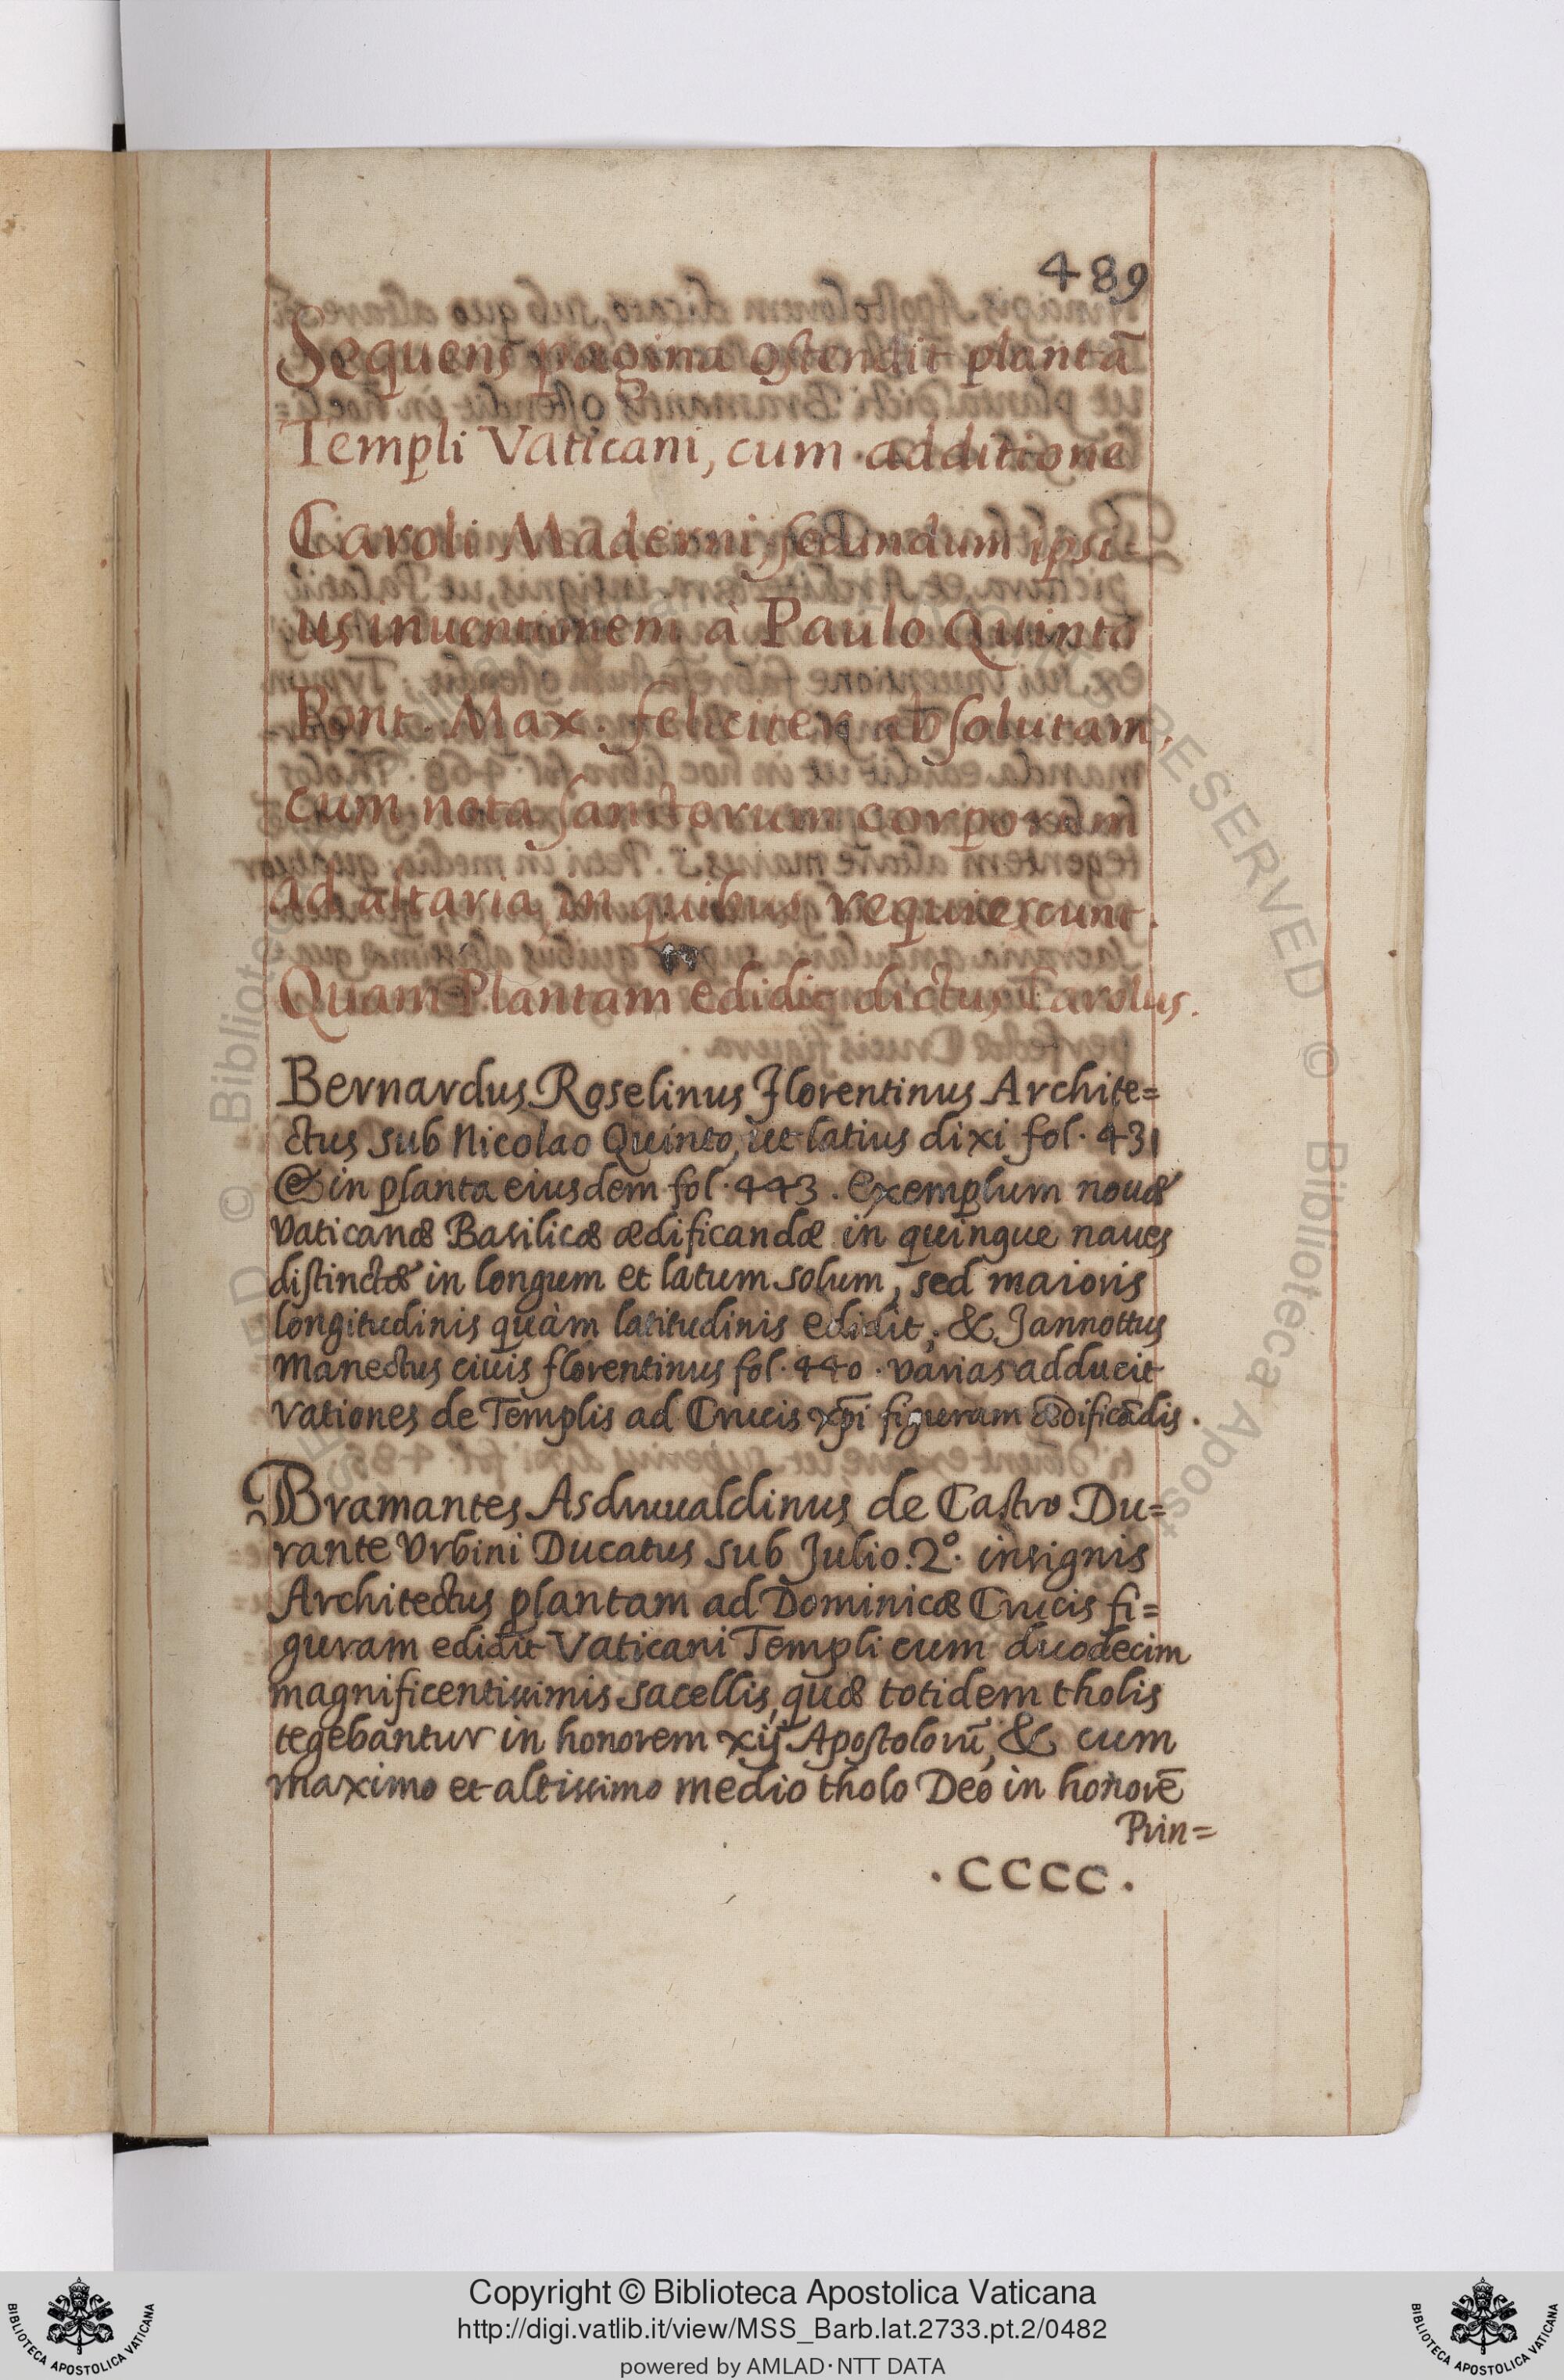 489
Sequens pagina ostendit plantā
Templi Vaticani, cum additione
Caroli Maderni, secundum ipsi=
us inuentionem à Paulo Quinto
Pont. Max. feliciter absolutam,
cum nota sanctorum corporum
ad altaria, in quibus requiescunt.
Quam Plantam edidit dictus Carolus.
Bernardus Roselinus Florentinus Archite=
ctus sub Nicolao Quinto, ut latius dixi fol. 431
& in planta eiusdem fol. 443. Exemplum nouæ
Vaticanæ Basilicæ ædificandæ in quinque naues
distinctæ in longum et latum solum, sed maioris
longitudinis quàm latitudinis edidit, & Jannottus
Manectus ciuis florentinus fol. 440. varias adducit
rationes de Templis ad Crucis xp̄i figuram ædificādis.
Bramantes Asdruualdinus de Castro Du=
rante Vrbini Ducatus sub Julio. 2º. insignis
Architectus plantam ad Dominicæ Crucis fi=
guram edidit Vaticani Templi cum duodecim
magnificentissimis sacellis, quæ totidem tholis
tegebantur in honorem xij Apostolorū, & cum
maximo et altissimo medio tholo Deo in honorē
Prin=
. CCCC .
© Biblioteca Apost
RESERVED ©
Copyright © Biblioteca Apostolica Vaticana
http://digi.vatlib.it/view/MSS_Barb.lat.2733.pt.2/0482
powered by AMLAD·NTT DATA
BIBLIOTECA APOSTOLICA VATICANA
BIBLIOTECA APOSTOLICA VATICANA